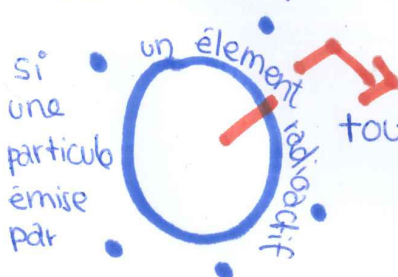 si
une
particule
émise
par
un élement radioactif
tou